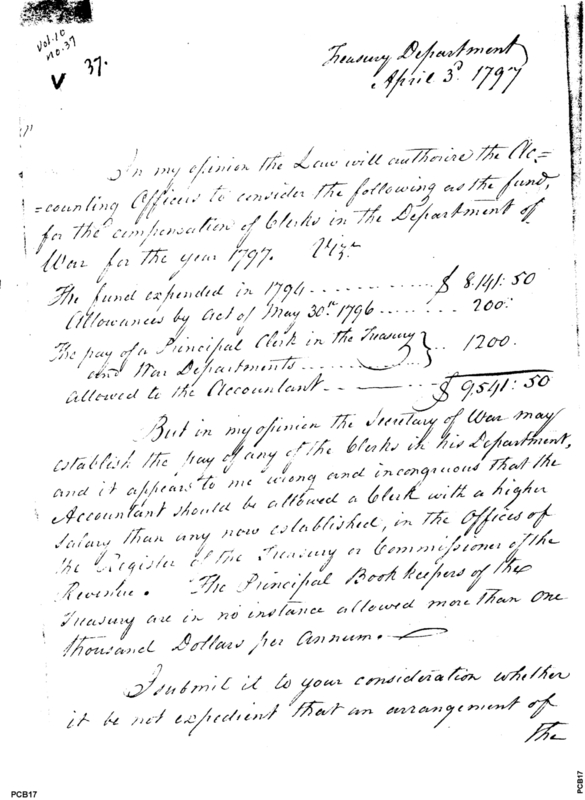 Vol. 10
No. 37
V 37.
Treasury Department
April 3d. 1797
In my opinion the Law will authorize the Ac=
=counting Officers to consider the following as the fund,
for the compensation of Clerks in the Department of
War for the year 1797. Vizt.
The fund expended in 1794 .......... $ 8.141:50
Allowances by Act of May 30th. 1796 ...... 200:
The pay of a Principal Clerk in the Treasury
and War Departments .... } .. 1200.
allowed to the Accountant ... $ 9,541:50
But in my opinion the Secretary of War may
establish the pay of any of the Clerks in his Department,
and it appears to me wrong and incongruous that the
Accountant should be allowed a Clerk with a higher
Salary than any now established, in the Offices of
the Register of the Treasury or Commissioner of the
Revenue. The Principal Bookkeepers of the
Treasury are in no instance allowed more than one
thousand Dollars per annum.
I submit it to your consideration whether
it be not expedient that an arrangement of
the
PCB17
PCB17